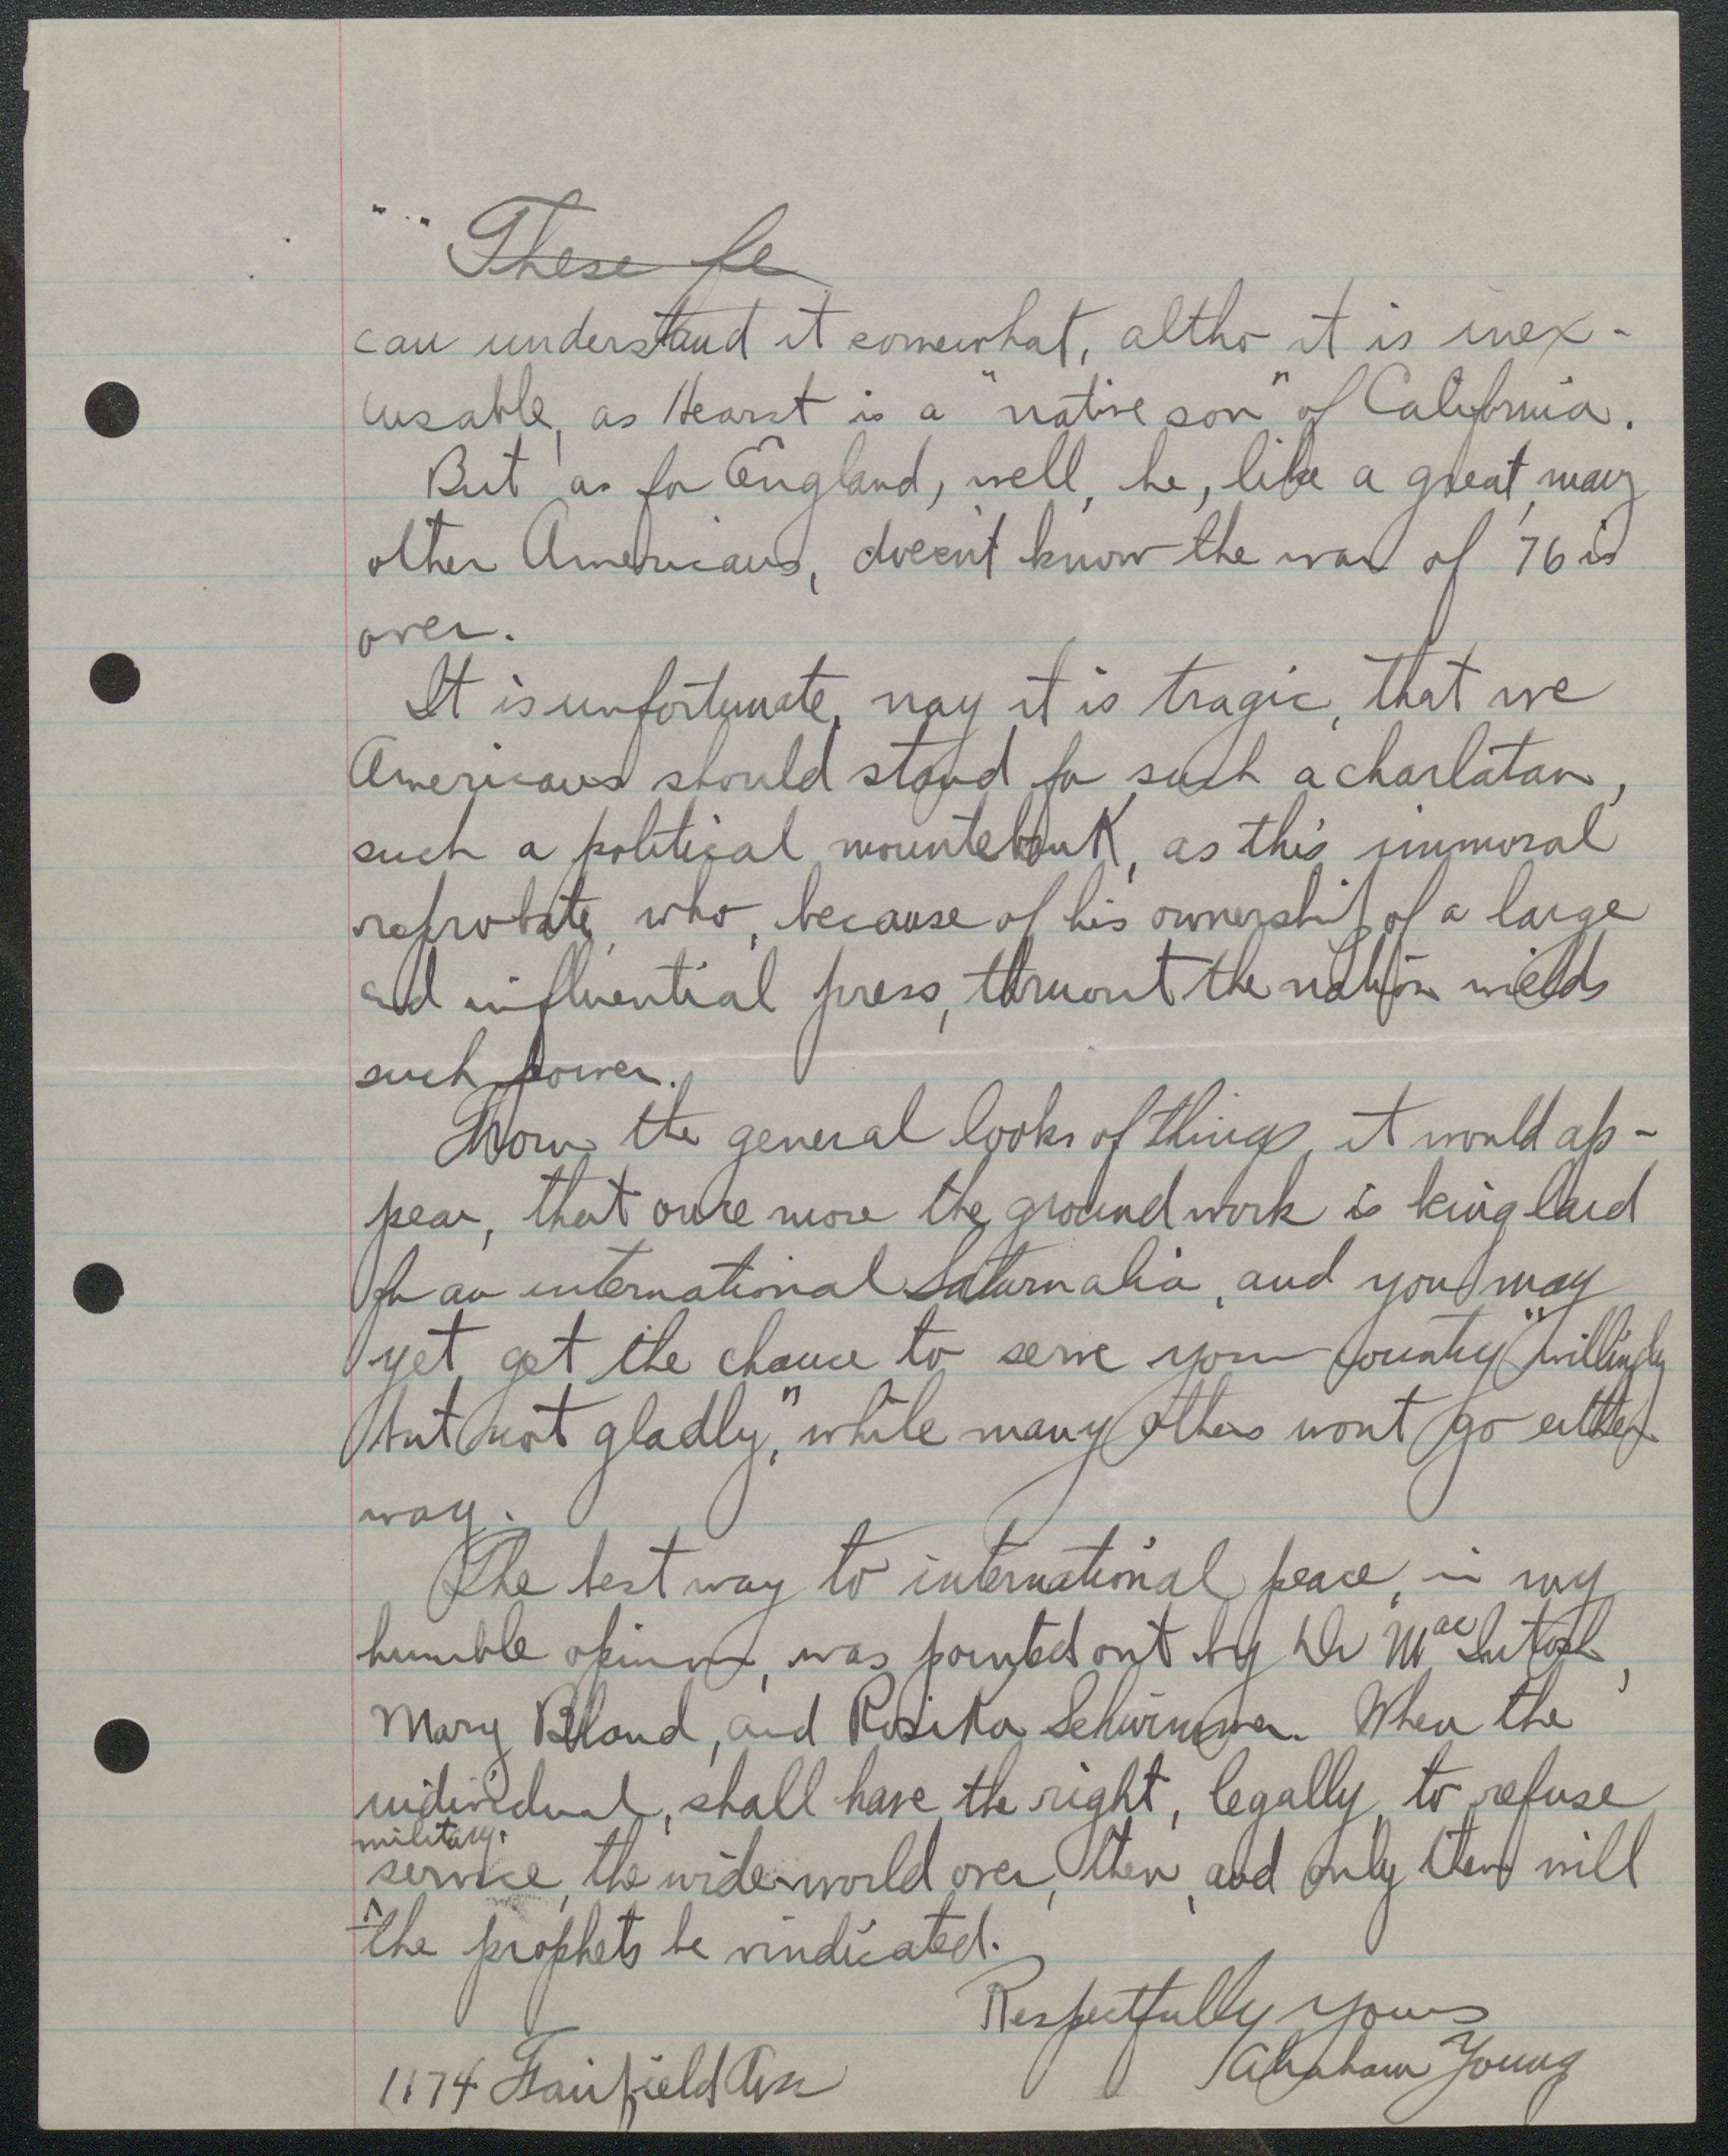 These fe
can understand it somewhat, altho it is inex-
cusable, as Hearst is a "native son" of California.
But as for England, well, he, like a great many
other Americans, doesn't know the war of '76 is
over.
It is unfortunate, nay it is tragic, that we
Americans should stand for such a charlatan,
such a political mountebank, as this immoral
reprobate, who, because of his ownership of a large
and influential press, thruout the nation wields
such power.
From the general looks of things, it would ap-
pear, that once more the groundwork is being laid
for an international Saturnalia, and you may
yet, get the chance to serve your country "willingly
but not gladly," while many others wont go either
way.
The best way to international peace, in my
humble opinion, was pointed out by Dr MacIntosh,
Mary Bland, and Rosika Schwimmer. When the
individual, shall have the right, legally, to refuse
military
service, the wide world over, then, and only then will
the prophets be vindicated.
Respectfully yours
Abraham Young
1174 Fairfield Ave